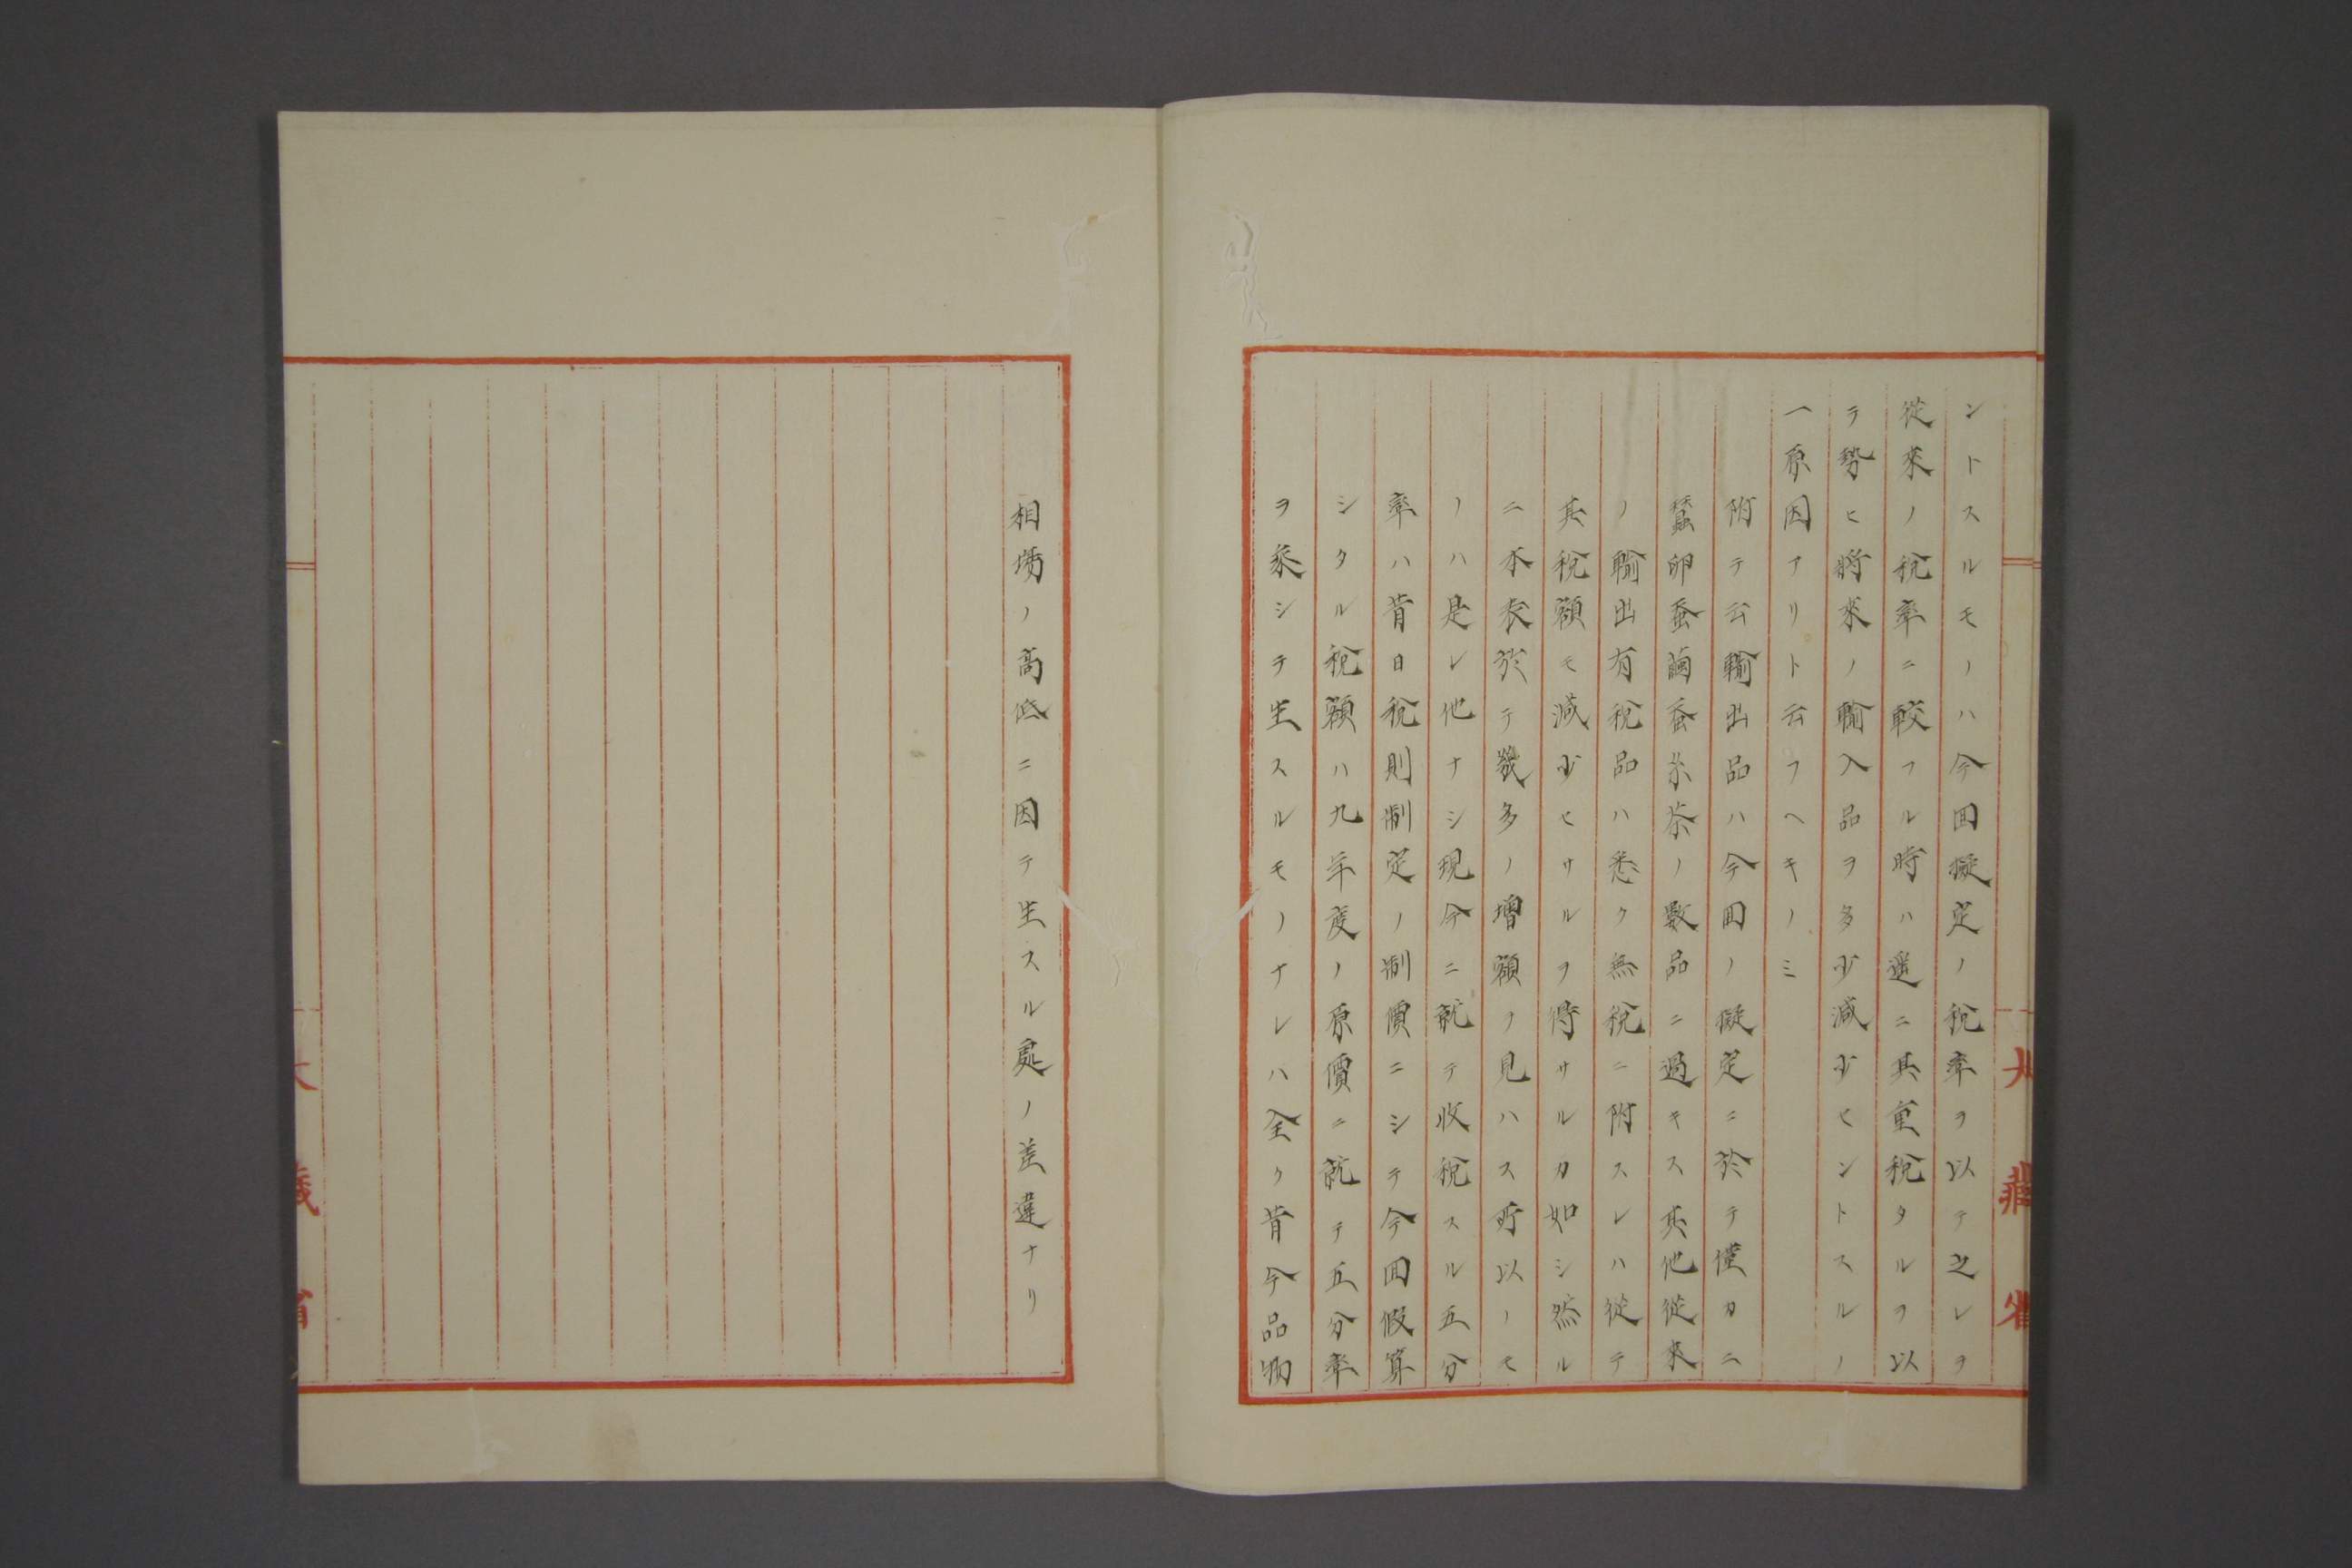 ントスルモノハ今回擬定ノ税率ヲ以テ之レヲ
從来ノ税率ニ較フル時ハ遥ニ其重税タルヲ以
テ勢ヒ將来ノ輸入品ヲ多少減少セントスルノ
一原因アリト云フヘキノミ
附テ云輸出品ハ今回ノ擬定ニ於テ僅カニ
蠶卵蚕繭蚕糸茶ノ數品ニ過キス其他從来
ノ輸出有税品ハ悉ク無税ニ附スレハ從テ
其税額モ減少セサルヲ得サルカ如シ然ル
ニ本表於テ幾多ノ増額ヲ見ハス所以ノモ
ノハ是レ他ナシ現今ニ就テ收税スル五分
率ハ昔日税則制定ノ制價ニシテ今回假算
シタル税額ハ九年度ノ原價ニ就テ五分率
ヲ乘シテ生スルモノナレハ全ク昔今品物
大藏省
相塲ノ高低ニ因テ生スル處ノ差違ナリ
大藏省